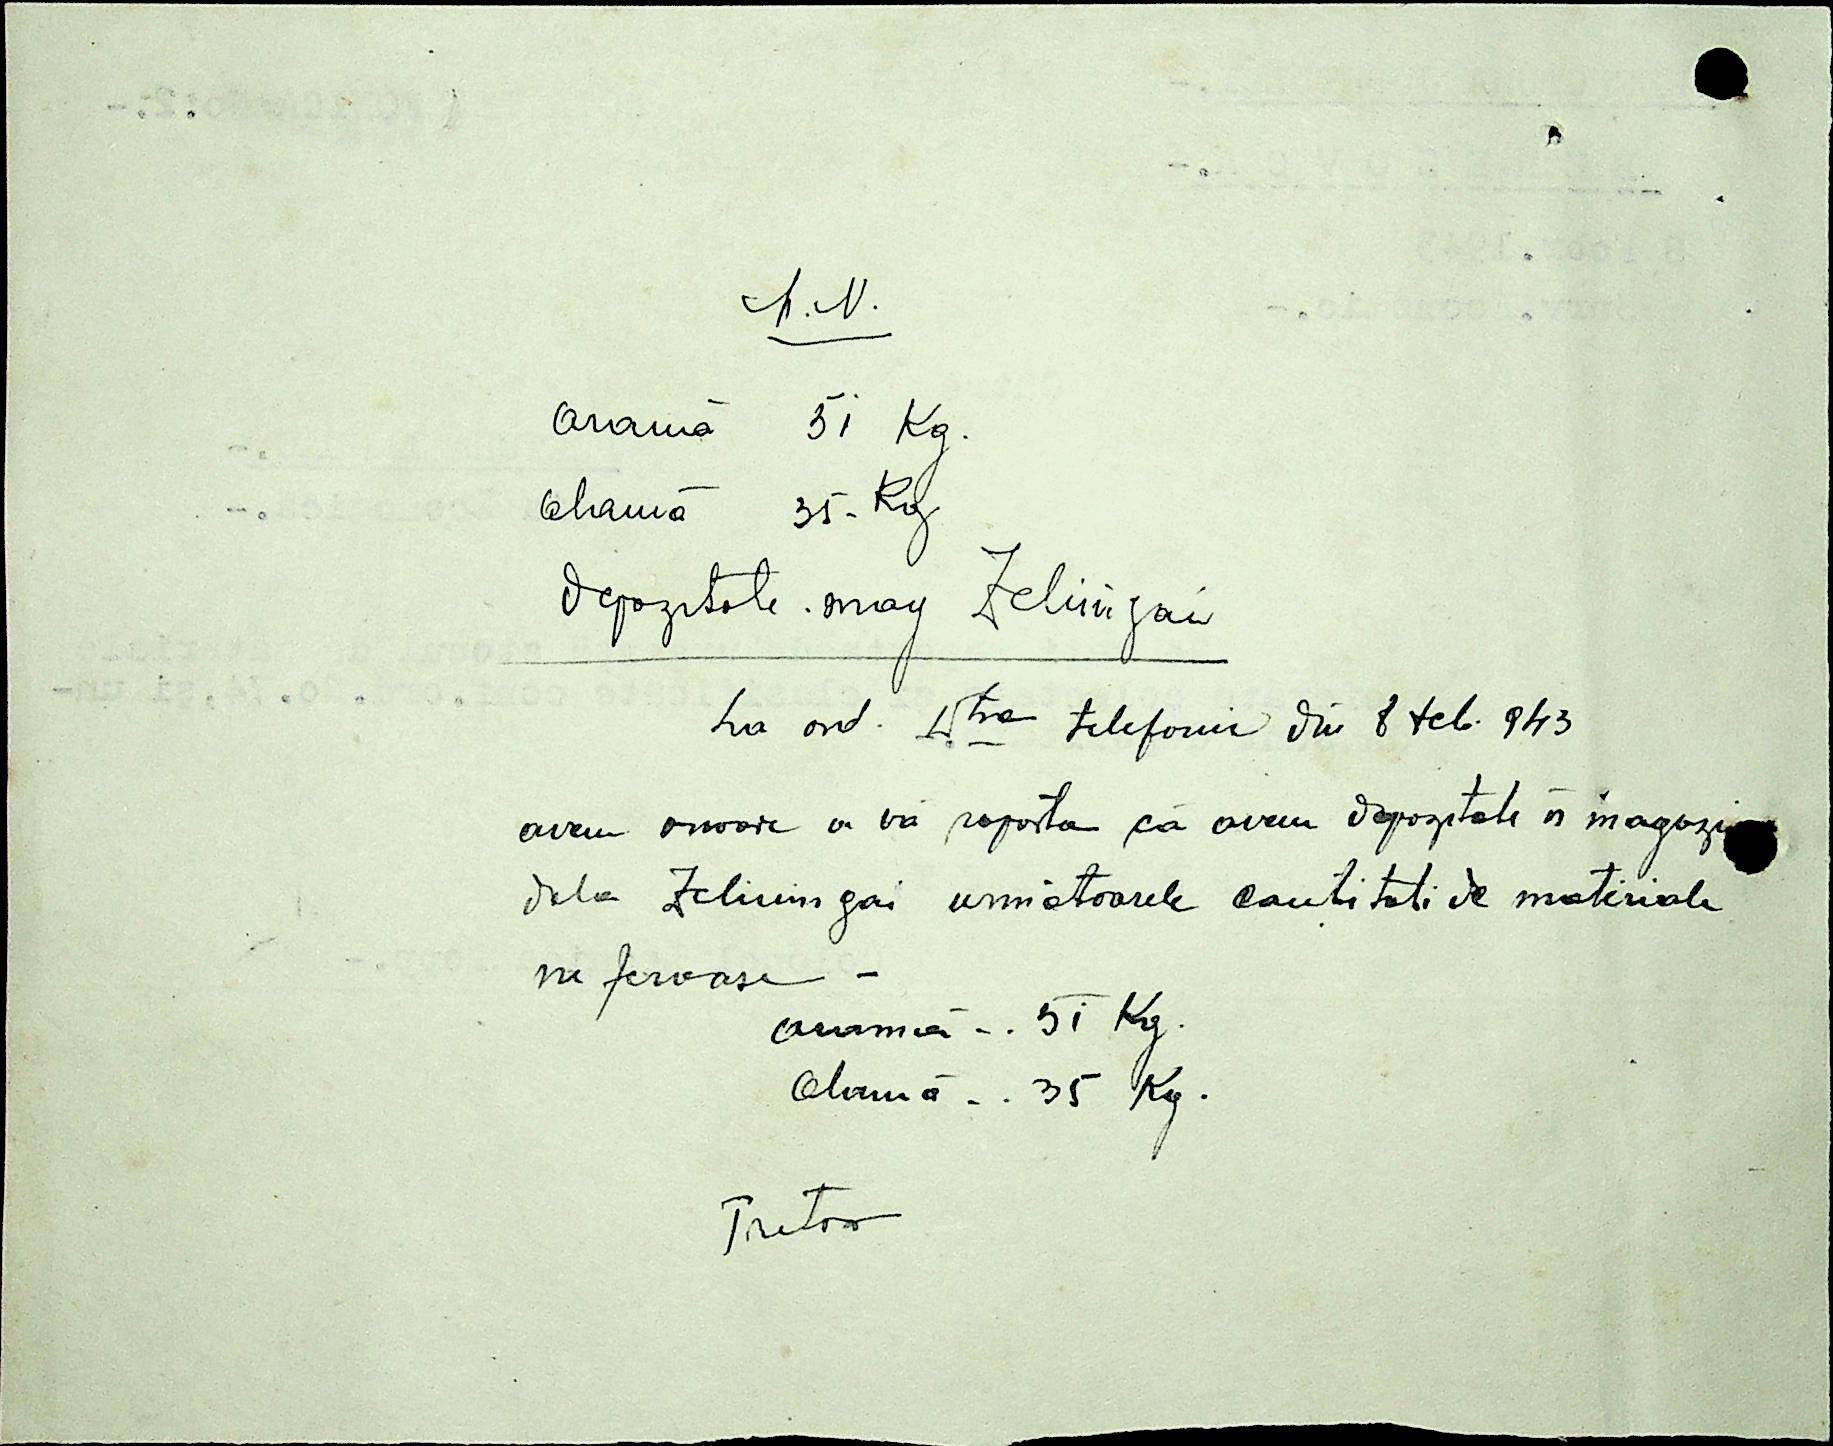 A.N.
aramă 51 Kg.
alamă 35 - Kg
depozitate . mag Zeliimgai
La ord. Dtra telefonic din 8 feb. 943
avem onoare a vă raporta că avem depozitate în magazi
dela Zeliimgai următoarele cantitati de materiale
ne feroase -
aramă - . 51 Kg.
Alamă - . 35 Kg.
Pretor